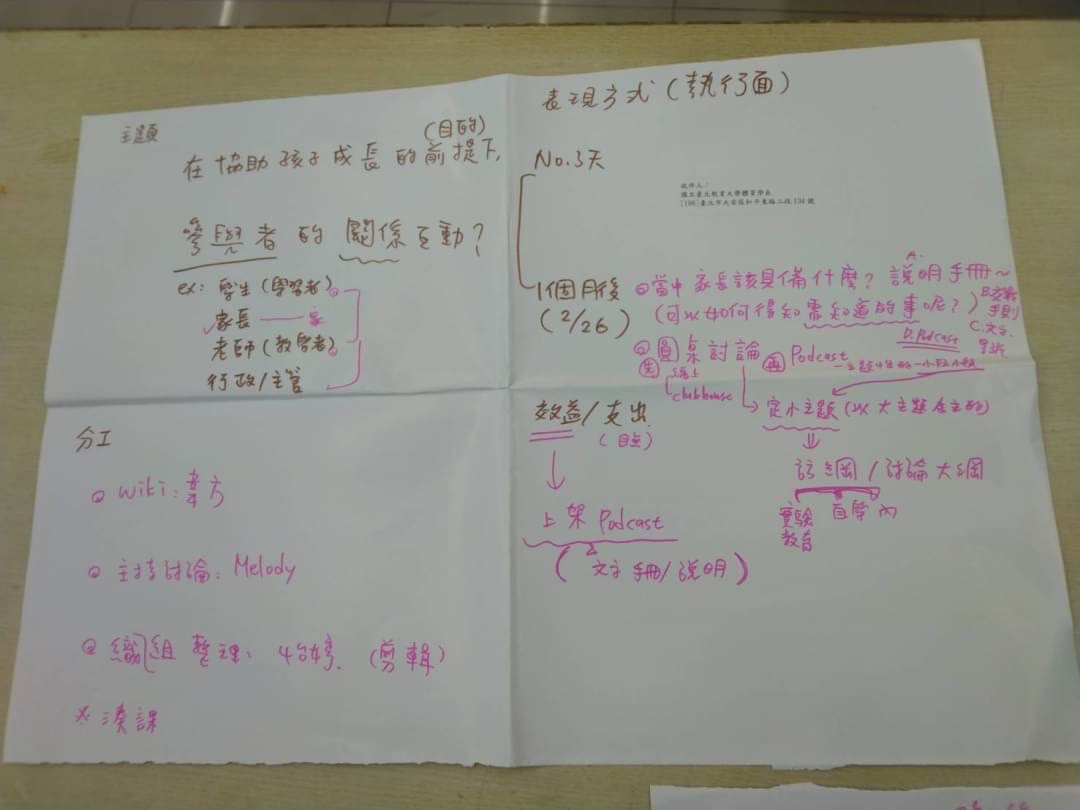 主題
(目的)
在協助孩子成長的前提下,
參與者的關係互動?
ex: 學生(學習者)
家長
老師(教學者)
行政/主管
表現方式(執行面)
No.3天
收件人:
國立臺北教育大學體育學系
[106]臺北市大安區和平東路二段 134 號
1個月後
(2/26)
當中家長該具備什麼? 說明手冊~
(可以如何得知需知道的事呢?)
A.
B.
C.文字
D.Podcast
圓桌討論
先
線上
clubhouse
再
Podcast
定小主題(以大主題在主軸)
訪綱/討論大綱
實驗
教育
自學
分工
wiki:
主持討論: Melody
組織整理: (剪輯)
※湊課
效益/支出
上架 Podcast
(文字手冊/說明)